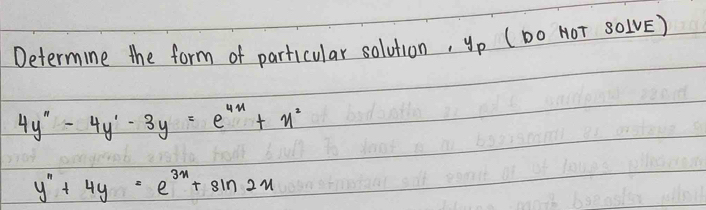 Determine the form of particular solution, yp (DO NOT SOLVE)
4y" - 4y' - 3y = e^4x + x²
y" + 4y = e^3x + sin 2x